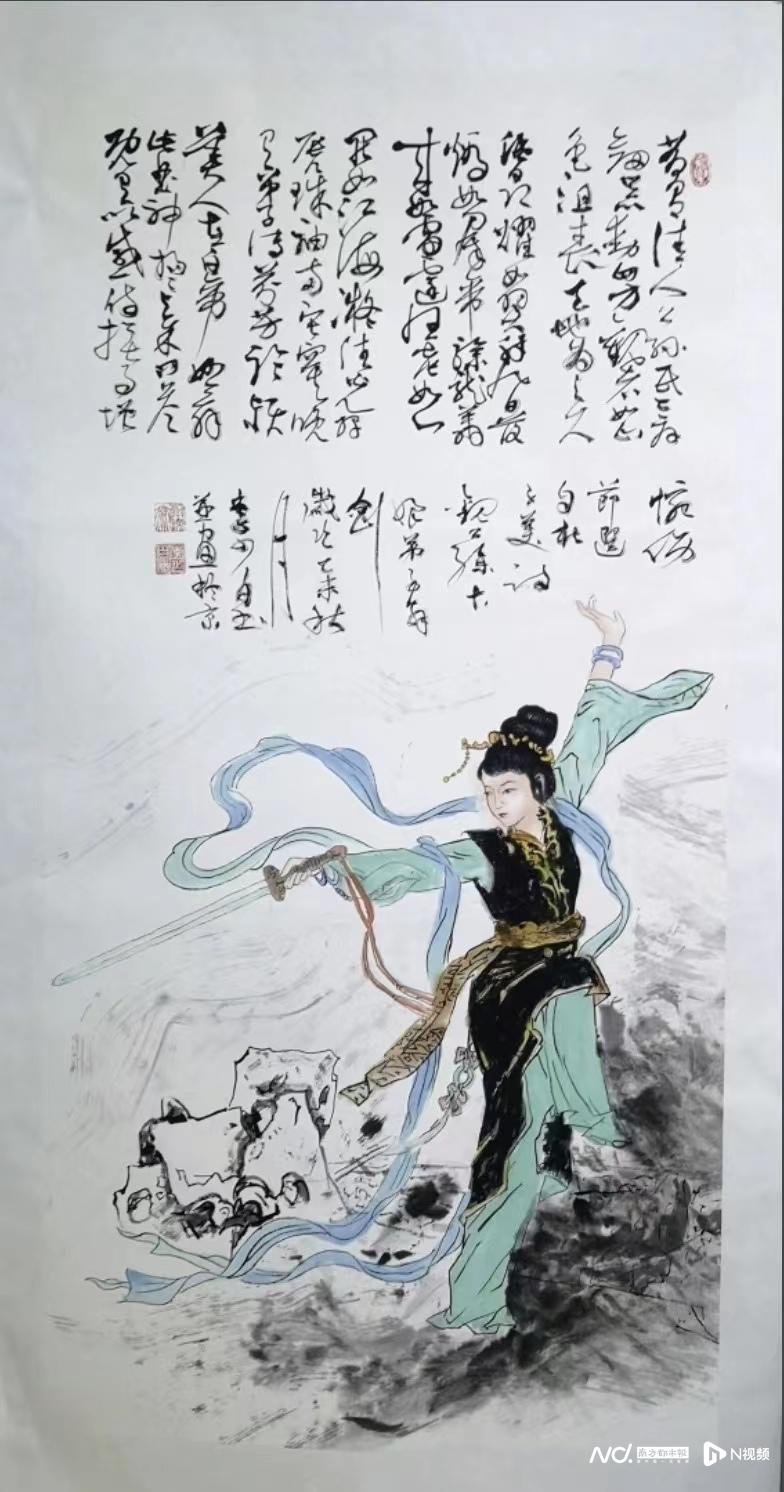 昔有佳人公孙氏一舞
剑器动四方观者如山
色沮丧天地为之久
低昂㸌如羿射九日落
矫如群帝骖龙翔
来如雷霆收震怒
罢如江海凝清光绛
唇珠袖两寂寞晚
有弟子传芬芳临颍
美人在白帝妙舞
此曲神扬扬与余问答
既有以感时抚事增
惋伤
节选
自杜
子美诗
观公孙大
娘弟子舞
剑
岁次乙未秋
月
并画于京
南方都市报
N视频